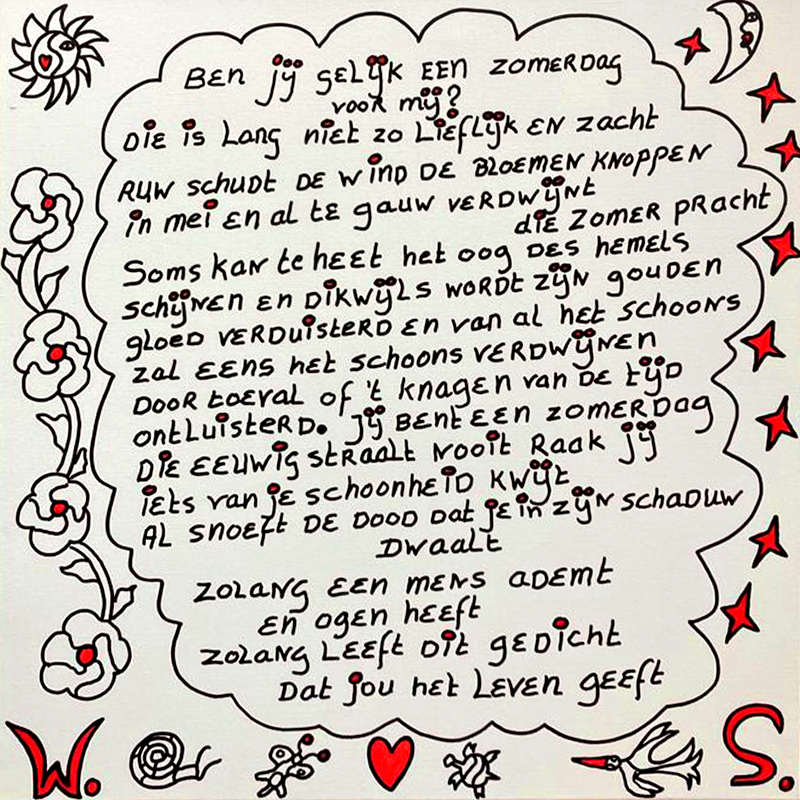 BEN jij GELijK EEN ZOMERDAG
voor mij?
Die is Lang niet zo LiefLijk EN zacht
RUW schudt DE WIND DE BLOEMEN KNOPPEN
in mei EN al te gauw VERDWijNt
die ZOMER PRACHT
Soms kan te heet het oog DES hemels
schijNEN EN DikWijLS WORDt ZijN gouden
gloed VERDuisterD EN van al het SCHOONS
zal EENS het schoons VERDWijNEN
DOOR toeval of 't knagen van DE tijD
ontLuisterD. jij BENt EEN ZOMERDag
Die EEUWig straalt nooit Raak jij
iets van je schoonheiD KWijt
AL snoeft DE DOOD Dat je in zijN schaDUW
DWaalt
zoLANG EEN MENS ademt
EN ogen heeft
zoLANG LEEft Dit gedicht
Dat jou het LEVEN geeft
W. S.